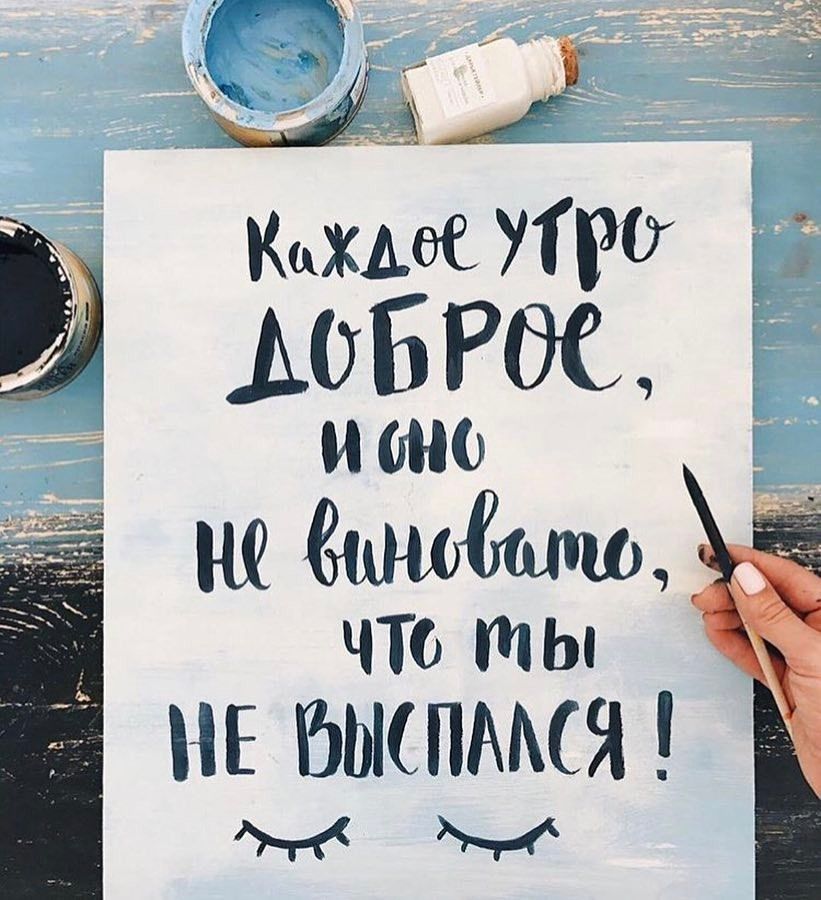 Каждое утро
ДОБРОЕ,
и оно
не виновато,
что ты
НЕ ВЫСПАЛСЯ!